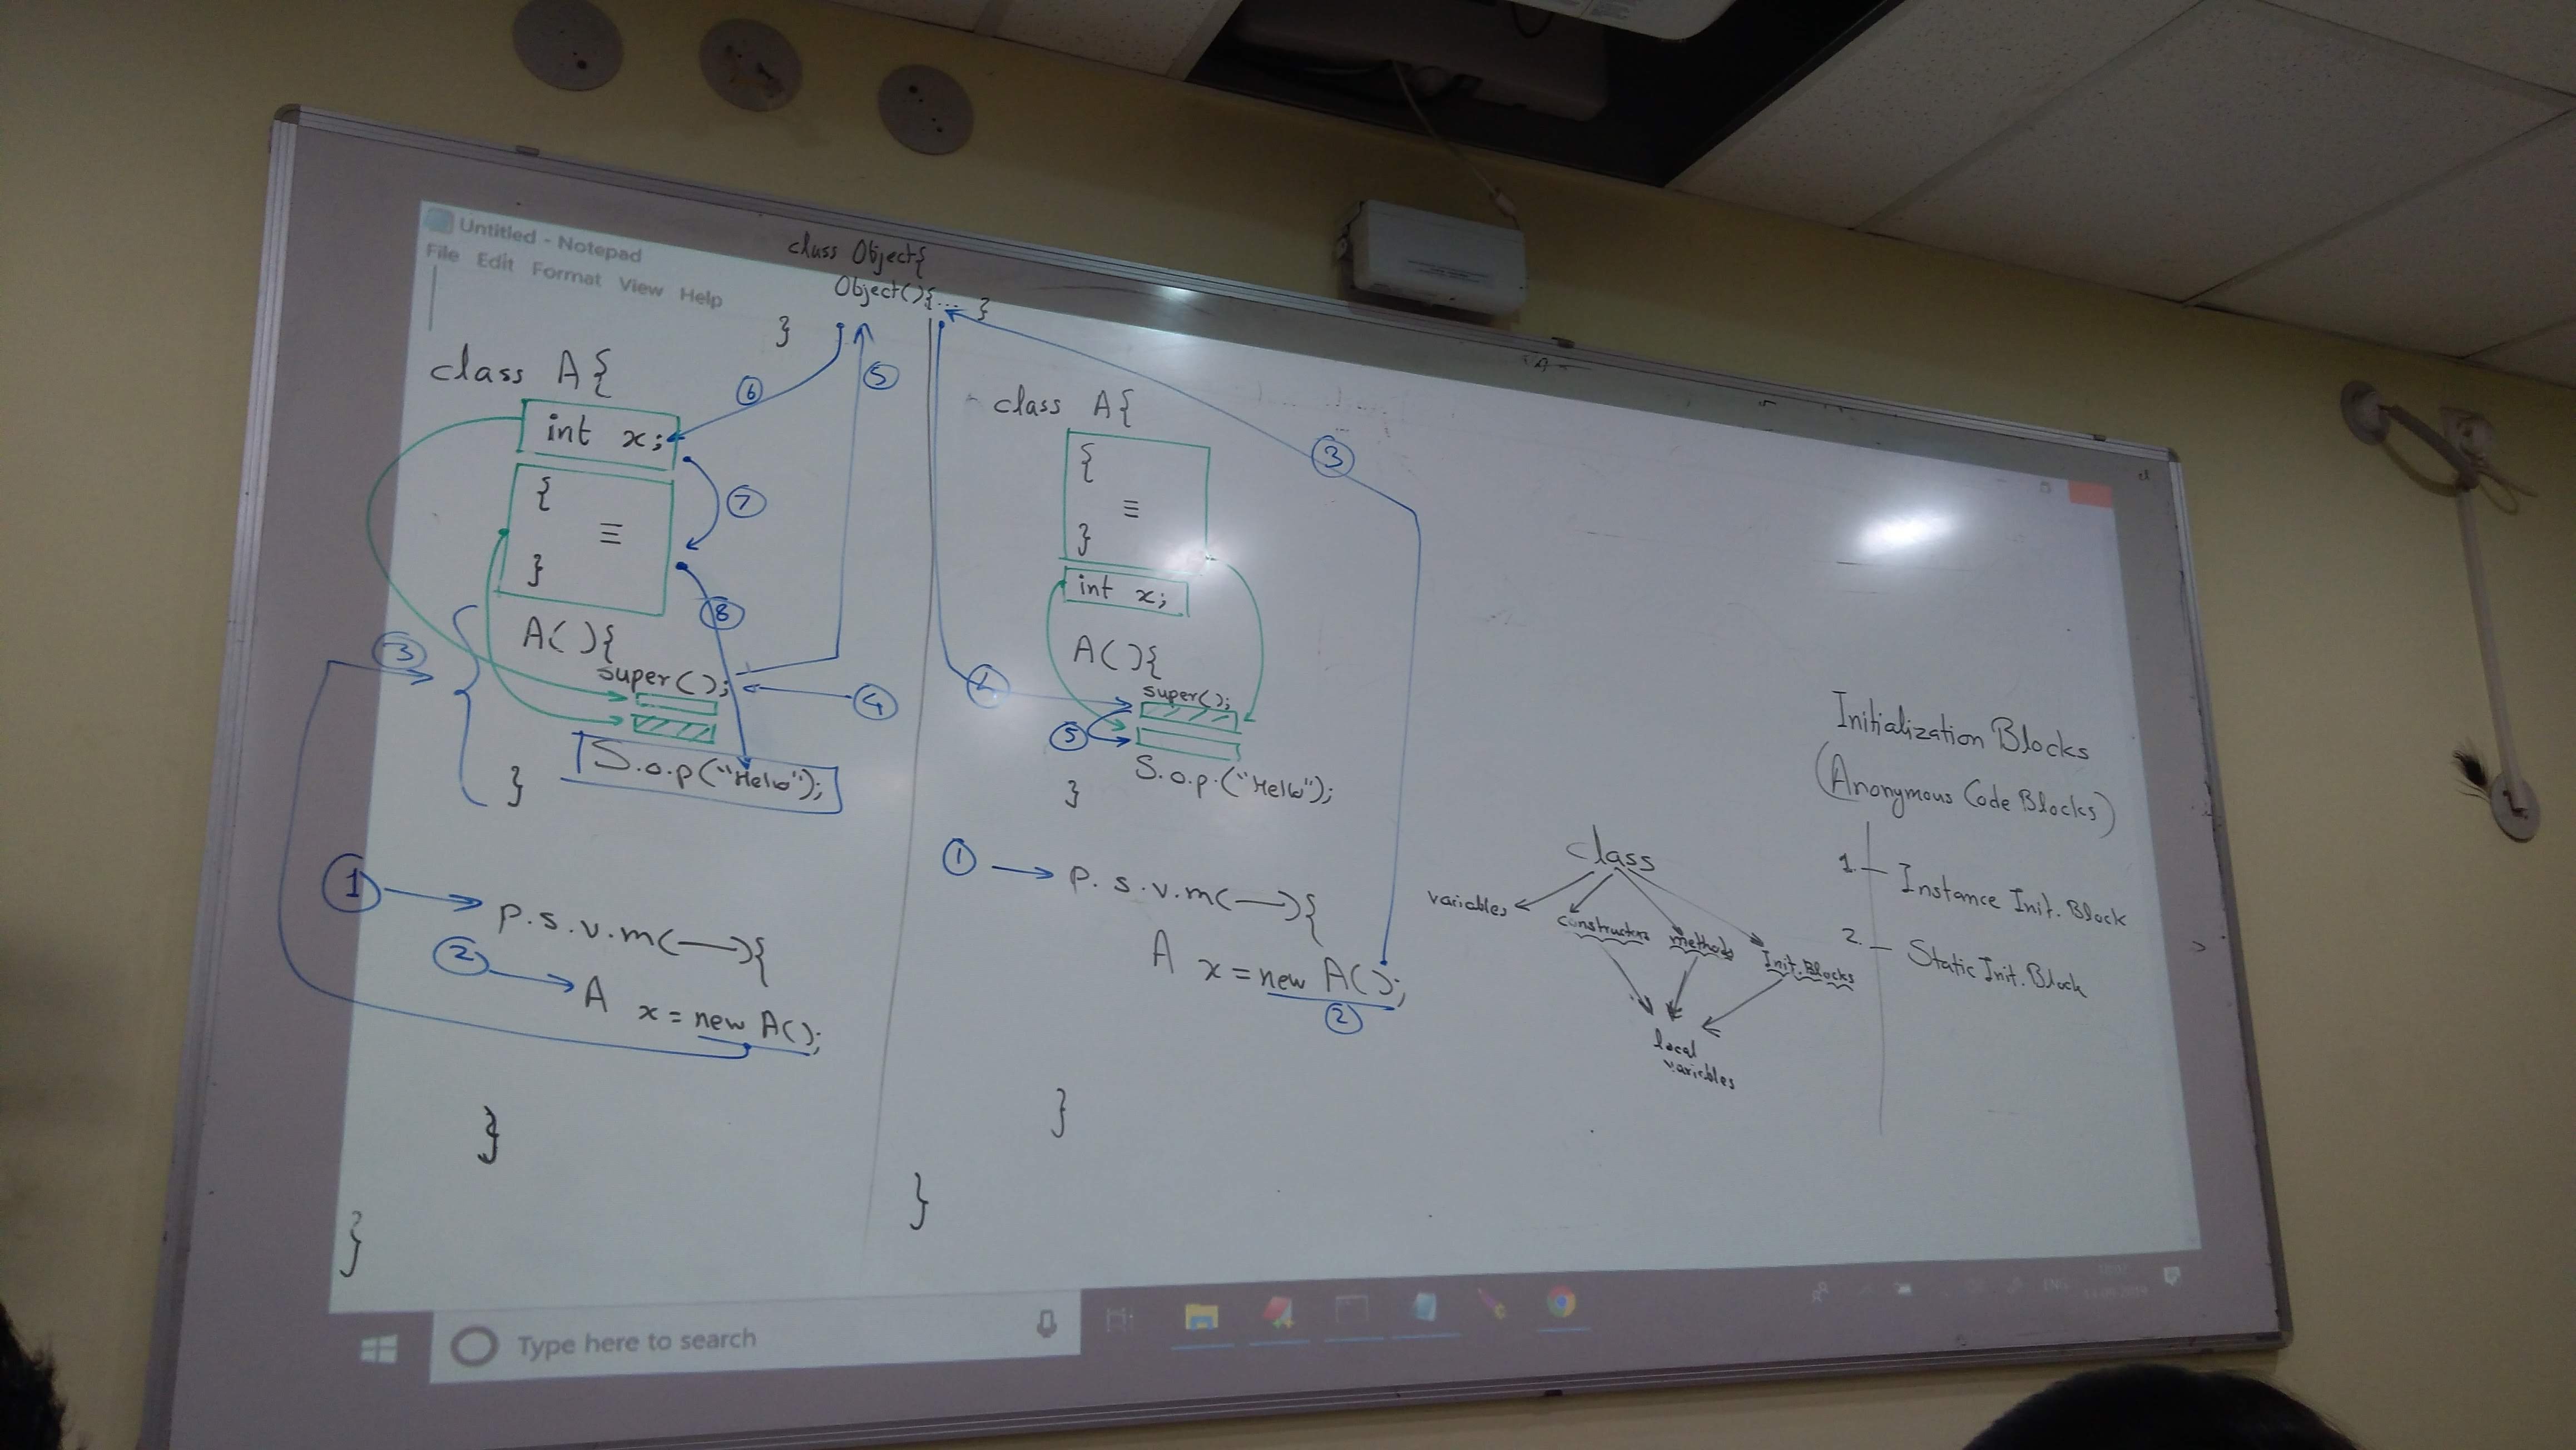 Untitled - Notepad
File Edit Format View Help
class Object{
Object(){... }
}
class A{
int x;
{
≡
}
A(){
super();
S.o.p("Hello");
}
① p.s.v.m(—){
② A x = new A();
}
}
③
④
⑤
⑥
⑦
⑧
class A{
{
≡
}
int x;
A(){
super();
S.o.p.("Hello");
}
① p.s.v.m(—){
A x = new A();
②
}
}
③
⑤
class
variables
constructors
methods
Init.Blocks
local
variables
Initialization Blocks
(Anonymous Code Blocks)
1. Instance Init. Block
2. Static Init. Block
Type here to search
ENG